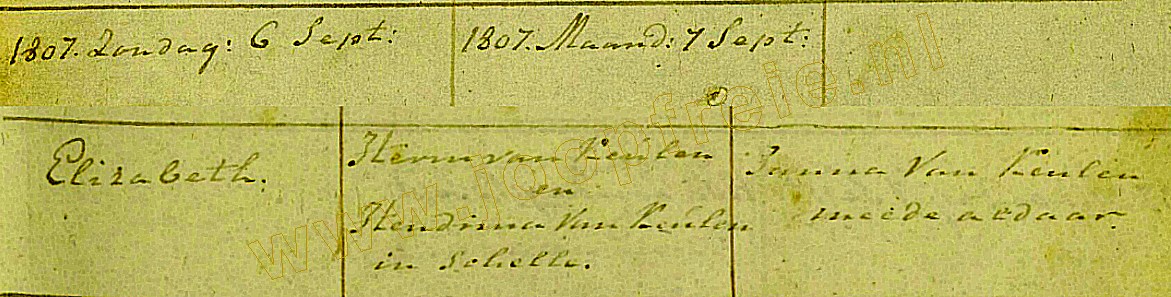 1807. Zondag: 6 Sept:
1807. Maand: 7 Sept:
Elizabeth.
Herm van Keulen
en
Hendrina Van Keulen
in Schelle.
Janna Van Keulen
meede aldaar.
www.joopfreie.nl